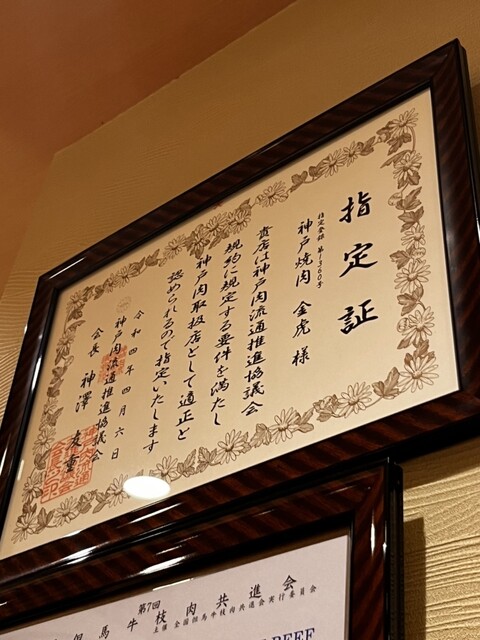 指定証
指定登録 第1360号
神戸焼肉 金虎 様
貴店は神戸肉流通推進協議会
規約に規定する要件を満たし
神戸肉取扱店として適正と
認められるので指定いたします
令和四年四月六日
神戸肉流通推進協議会
会長 神澤 友重
第7回
但馬牛枝肉共進会
主催 全国但馬牛枝肉共進会実行委員会
BEEF